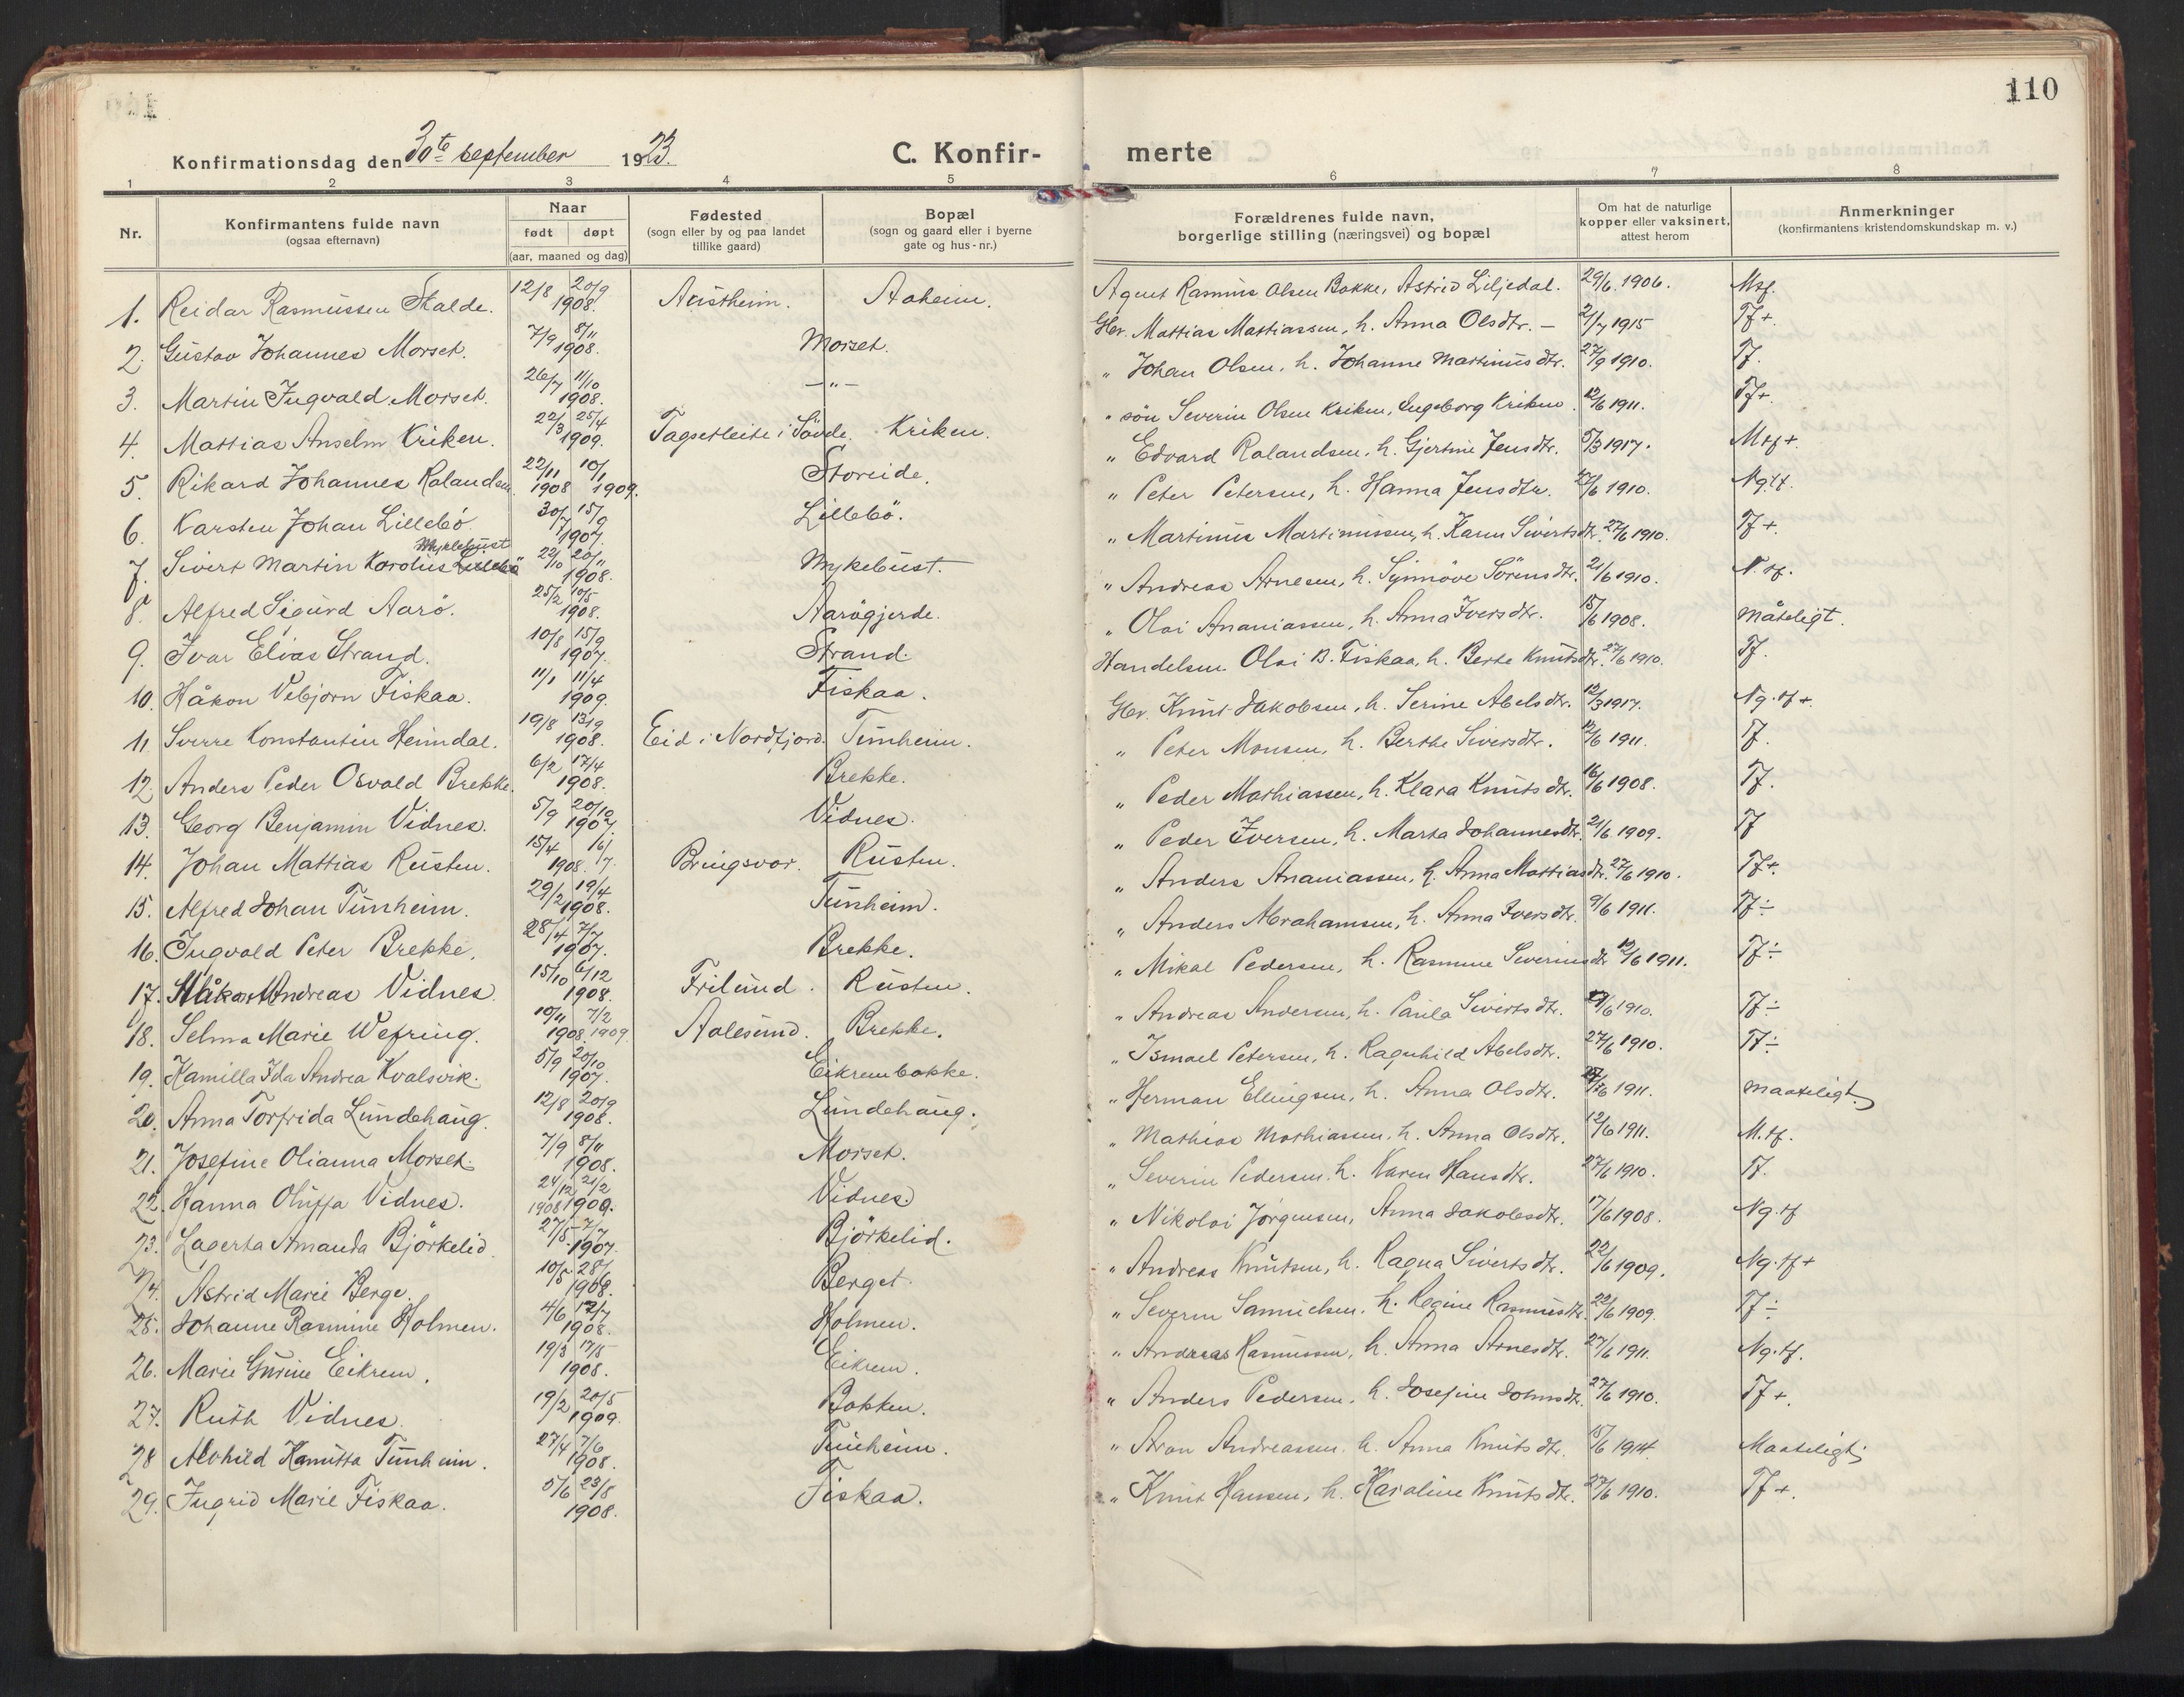 110
Konfirmationsdag den 30te september 1923. C. Konfir- merte
1 2 3 4 5 6 7 8
Nr. Konfirmantens fulde navn (ogsaa efternavn) Naar født døpt (aar, maaned og dag) Fødested (sogn eller by og paa landet tillike gaard) Bopæl (sogn og gaard eller i byerne gate og hus-nr.) Forældrenes fulde navn, borgerlige stilling (næringsvei) og bopæl Om hat de naturlige kopper eller vaksinert, attest herom Anmerkninger (konfirmantens kristendomskundskap m. v.)
1. Reidar Rasmussen Skalde. 12/8 20/9 1908. Austheim. Aaheim. Agent Rasmus Olsen Bakke, Astrid Liljedal. 29/6. 1906. Mtf.
2. Gustav Johannes Morset. 7/9 8/11 1908. Morset. Gbr. Mattias Mattiassen, h. Anna Olsdtr. — 2/7 1915 Tf+.
3. Martin Ingvald Morset. 26/7 11/10 1908. —"— " Johan Olsen, h. Johanne Martinusdtr. 27/9 1910. Tf.
4. Mattias Anselm Kriken. 22/3 25/4 1909. Tagsetleite i Søvde. Kriken. " søn Severin Olsen Kriken, Ingeborg Kriken. 12/6 1911. Tf+.
5. Rikard Johannes Rolandsen. 22/11 1908 10/1 1909. Storeide. " Edvard Rolandsen, h. Gjertine Jensdtr. 5/3 1917. Mtf+.
6. Karsten Johan Lillebö. 30/7 15/9 1907. Lillebö. " Peter Petersen, h. Hanna Jensdtr. 27/6 1910. Ng.tf.
7. Sivert Martin Karolius Lillebö Myklebust 22/10 20/11 1908. Mykebust. " Martinus Martinussen, h. Karen Sivertsdtr. 27/6 1910. Tf+.
8. Alfred Sigurd Aarö. 25/2 10/5 1908. Aarögjerde. " Andreas Arnesen, h. Synnöve Sörensdtr. 21/6 1910. N.tf.
9. Ivar Elias Strand. 10/8 15/9 1907. Strand. " Olai Ananiassen, h. Anna Iversdtr. 15/6 1908. Måteligt.
10. Håkon Vebjorn Fiskaa. 11/1 11/4 1909. Fiskaa. Handelsm. Olai B. Fiskaa, h. Berte Knutsdtr. 27/6 1910. Tf.
11. Sverre Konstantin Heimdal. 19/8 13/9 1908. Eid i Nordfjord. Tunheim. Gbr. Knut Jakobsen, h. Serine Abelsdtr. 12/3 1917. Ng.tf+.
12. Anders Peder Osvald Brekke. 6/2 17/4 1908. Brekke. " Peter Monsen, h. Berthe Siversdtr. 12/6 1911. Tf.
13. Georg Benjamin Vidnes. 5/9 20/10 1907 Vidnes. " Peder Mathiassen, h. Klara Knutsdtr. 16/6 1908. Tf.
14. Johan Mattias Rusten. 15/4 16/7 1908. Bringsvor. Rusten. " Peder Iversen, h. Marta Johannesdtr. 21/6 1909. Tf
15. Alfred Johan Tunheim. 29/2 19/4 1908. Tunheim. " Anders Ananiassen, h. Anna Mattiasdtr. 27/6 1910. Tf+.
16. Ingvald Peter Brekke. 28/4 7/7 1907. Brekke. " Anders Abrahamsen, h. Anna Iversdtr. 9/6 1911. Tf÷
17. Håkon Andreas Vidnes. 15/10 6/12 1908. Frilund. Rusten. " Mikal Pedersen, h. Rasmine Severinsdtr. 12/6 1911. Tf÷
18. Selma Marie Wefring. 10/11 1908. 7/2 1909 Aalesund. Brekke. " Andreas Andersen, h. Paula Sivertsdtr. 27/6 1910. Tf÷
19. Kamilla Ida Andrea Kvalsvik. 5/9 20/10 1907. Eikrembakke. " Ismael Petersen, h. Ragnhild Abelsdtr. 27/6 1910. Tf÷
20. Anna Torfrida Lundehaug. 12/8 20/9 1908. Lundehaug. " Herman Ellingsen, h. Anna Olsdtr. 1911. Maateligt.
21. Josefine Olianna Morset. 7/9 8/11 1908. Morset. " Mathias Mathiassen, h. Anna Olsdtr. 12/6 1911. M.tf.
22. Hanna Oluffa Vidnes. 24/12 1908 21/2 1909. Vidnes. " Severin Pedersen, h. Karen Hansdtr. 27/6 1910. Tf.
23. Lagerta Amanda Björkelid. 27/5 7/7 1907. Björkelid. " Nikolai Jörgensen, Anna Jakobsdtr. 17/6 1908. Ng.tf
24. Astrid Marie Berge. 10/5 28/6 1908. Berget. " Andreas Knutsen, h. Ragna Sivertsdtr. 22/6 1909. Ng.tf+
25. Johanne Rasmine Holmen. 4/6 12/7 1908. Holmen. " Severin Samuelsen, h. Regine Rasmusdtr. 22/6 1909. Tf÷
26. Marie Gurine Eikrem. 19/3 17/5 1908. Eikrem. " Andreas Rasmussen, h. Anna Arnesdtr. 27/6 1911. Ng.tf.
27. Ruth Vidnes. 19/2 20/5 1909. Bakken. " Anders Pedersen, h. Josefine Johnsdtr. 27/6 1910. Tf+.
28 Alvhild Kanutta Tunheim. 27/4 7/6 1908. Tunheim. " Aron Andreassen, h. Anna Knutsdtr. 15/6 1914. Maateligt.
29. Ingrid Marie Fiskaa. 5/6 23/8 1908. Fiskaa. " Knut Hansen, h. Karoline Knutsdtr. 27/6 1910. Tf+.